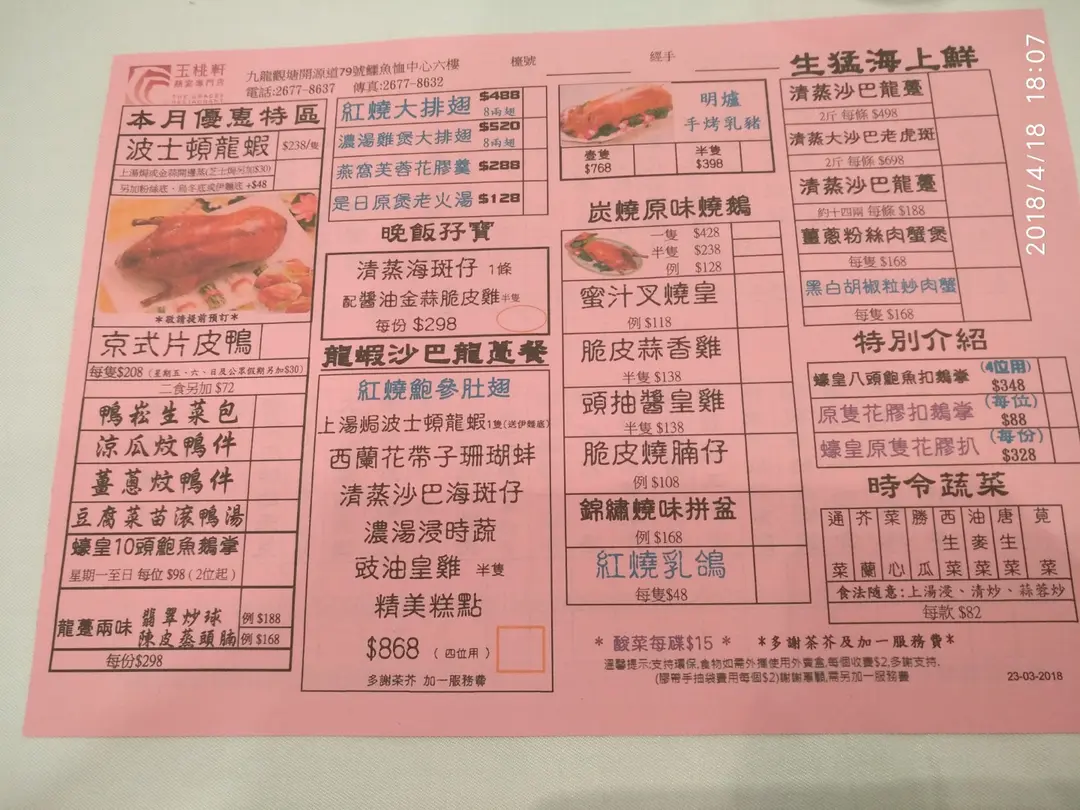 玉桃軒
九龍觀塘開源道79號鱷魚恤中心六樓
電話:2677-8637 傳真:2677-8632
檯號
經手
本月優惠特區
波士頓龍蝦 $238/隻
上湯焗或金蒜開邊蒸(芝士焗另加$30)
另加粉絲底、烏冬底或伊麵底 +$48
*敬請提前預訂*
京式片皮鴨
每隻$208 (星期五、六、日及公眾假期另加$30)
二食另加 $72
鴨崧生菜包
涼瓜炆鴨件
薑蔥炆鴨件
豆腐菜苗滾鴨湯
蠔皇10頭鮑魚鵝掌
星期一至日 每位 $98 (2位起)
龍躉兩味
翡翠炒球 例 $188
陳皮蒸頭腩 例 $168
每份$298
紅燒大排翅 $488
8兩翅
濃湯雞煲大排翅 $520
8兩翅
燕窩芙蓉花膠羹 $288
是日原煲老火湯 $128
晚飯孖寶
清蒸海斑仔 1條
配醬油金蒜脆皮雞半隻
每份 $298
龍蝦沙巴龍躉餐
紅燒鮑參肚翅
上湯焗波士頓龍蝦1隻(送伊麵底)
西蘭花帶子珊瑚蚌
清蒸沙巴海斑仔
濃湯浸時蔬
豉油皇雞 半隻
精美糕點
$868 (四位用)
多謝茶芥 加一服務費
明爐
手烤乳豬
壹隻
$768
半隻
$398
炭燒原味燒鵝
一隻 $428
半隻 $238
例 $128
蜜汁叉燒皇
例 $118
脆皮蒜香雞
半隻 $138
頭抽醬皇雞
半隻 $138
脆皮燒腩仔
例 $108
錦繡燒味拼盆
例 $168
紅燒乳鴿
每隻$48
生猛海上鮮
清蒸沙巴龍躉
2斤 每條 $498
清蒸大沙巴老虎斑
2斤 每條 $698
清蒸沙巴龍躉
約十四兩 每條 $188
薑蔥粉絲肉蟹煲
每隻 $168
黑白胡椒粒炒肉蟹
每隻 $168
特別介紹
蠔皇八頭鮑魚扣鵝掌 (4位用)
$348
原隻花膠扣鵝掌 (每位)
$88
蠔皇原隻花膠扒 (每份)
$328
時令蔬菜
通菜
芥蘭
菜心
勝瓜
西生菜
油麥菜
唐生菜
莧菜
食法隨意:上湯浸、清炒、蒜蓉炒
每款 $82
* 酸菜每碟$15 * *多謝茶芥及加一服務費*
溫馨提示:支持環保,食物如需外攜使用外賣盒,每個收費$2,多謝支持.
(膠帶手抽袋費用每個$2)謝謝惠顧,需另加一服務費
23-03-2018
2018/4/18 18:07